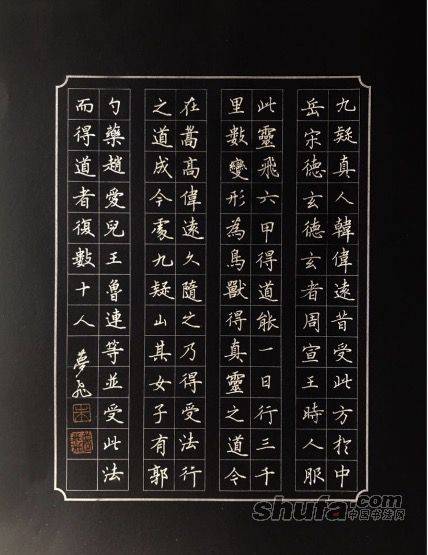 九疑真人韓偉遠昔受此方於中
岳宋德玄德玄者周宣王時人服
此靈飛六甲得道能一日行三千
里數變形為鳥獸得真靈之道今
在嵩高偉遠久隨之乃得受法行
之道成今處九疑山其女子有郭
勺藥趙愛兒王魯連等並受此法
而得道者復數十人
夢飛
shufa.com
中国书法网